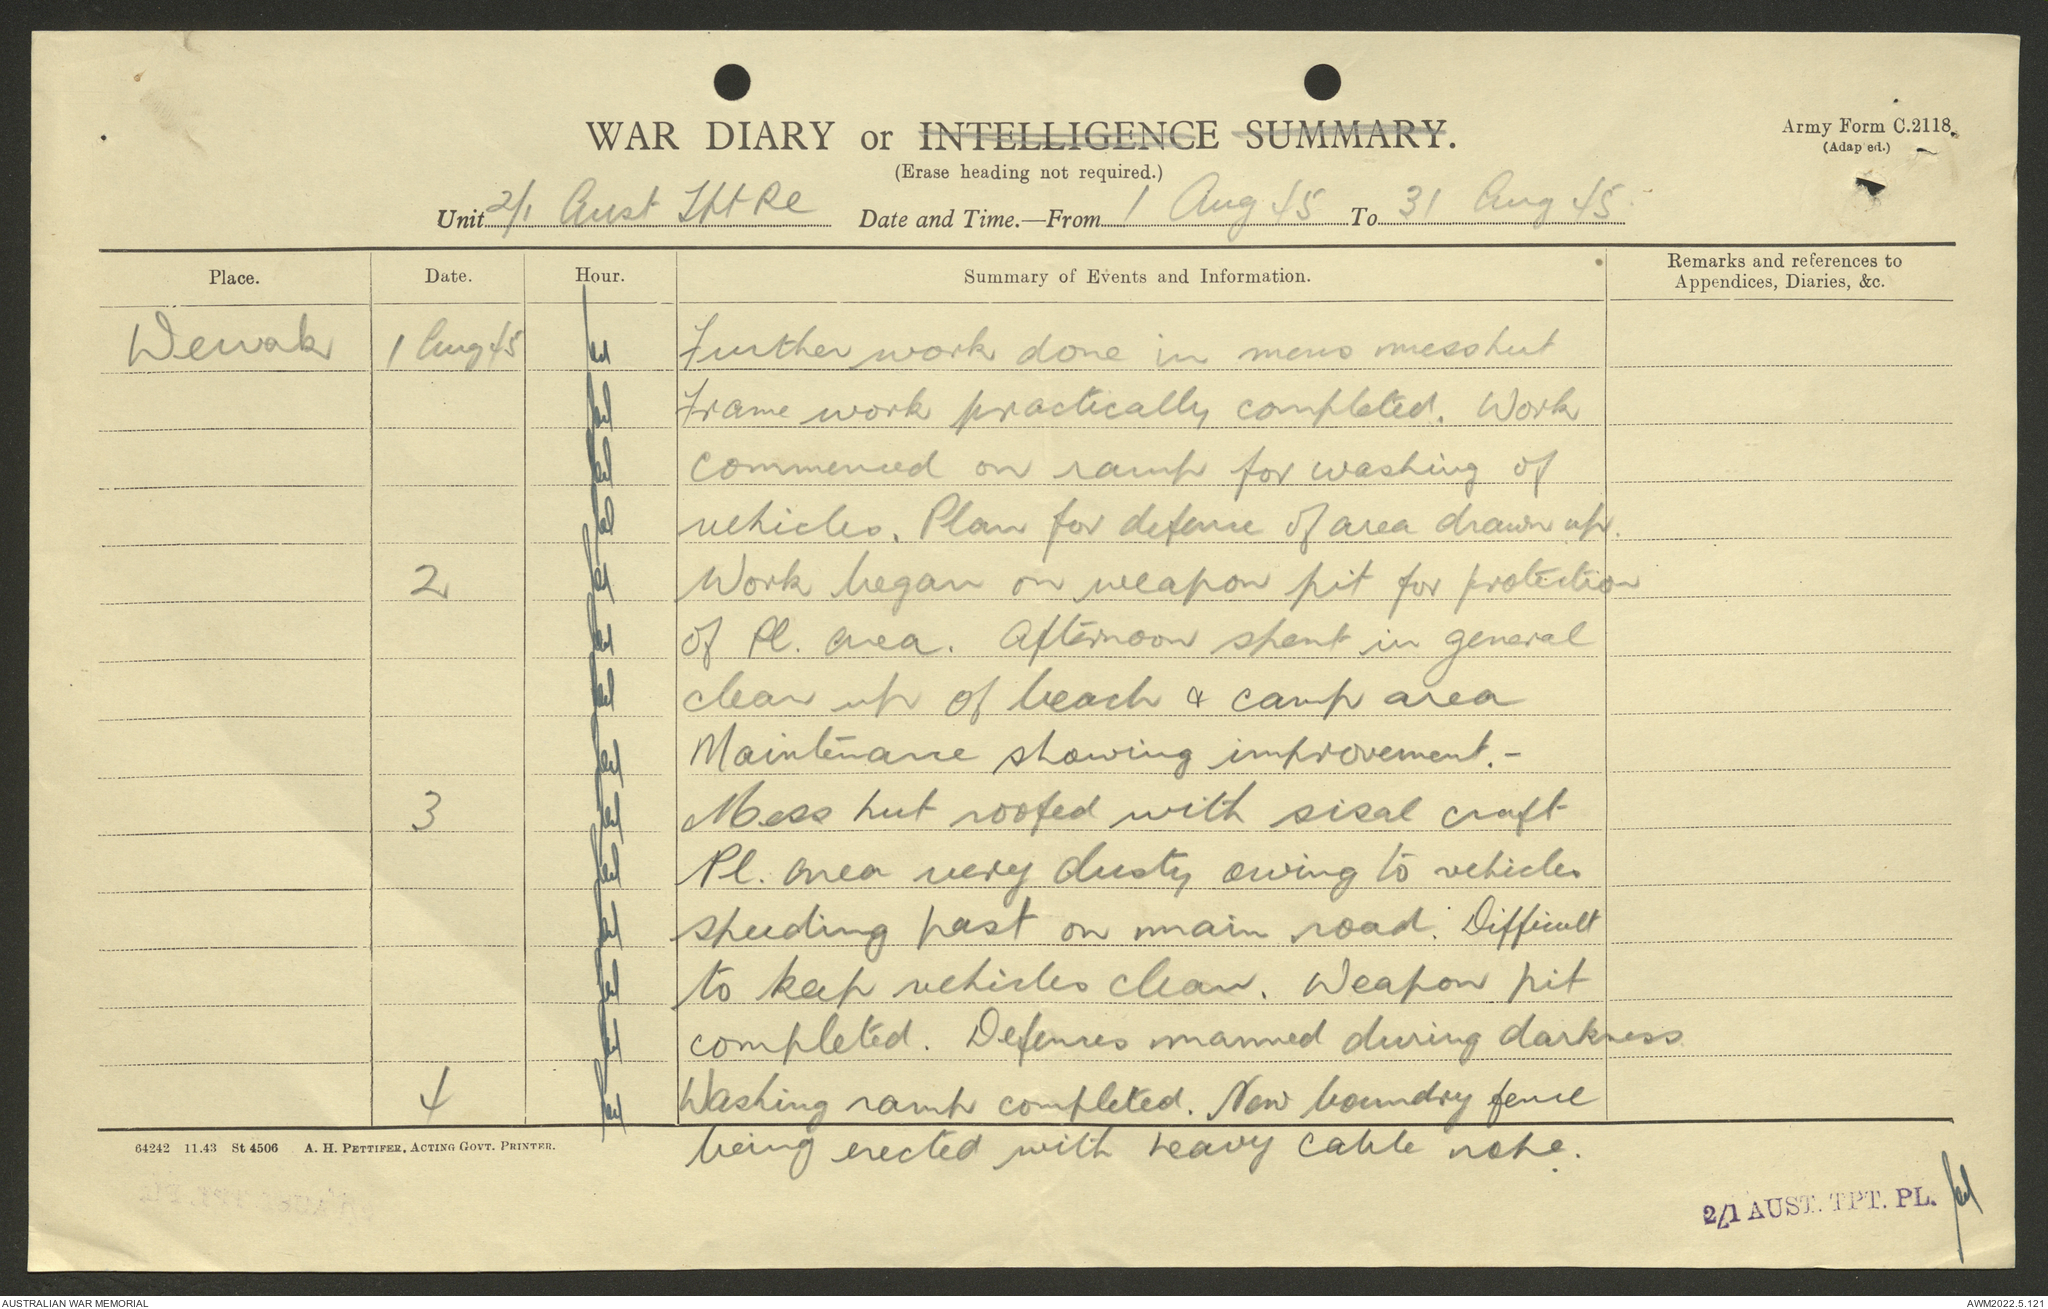 WAR DIARY or INTELLIGENCE SUMMARY.
(Erase heading not required.)
Army Form C.2118.
(Adap ed.)
Unit 2/1 Aust Tpt Pl Date and Time.—From 1 Aug 45 To 31 Aug 45.
Place. Date. Hour. Summary of Events and Information. Remarks and references to
Appendices, Diaries, &c.
Wewak 1 Aug 45 Further work done in mens messhut
Frame work practically completed. Work
commenced on ramp for washing of
vehicles. Plan for defense of area drawn up.
2 Work began on weapon pit for protection
of Pl. area. Afternoon spent in general
clean up of beach & camp area
Maintenance showing improvement. -
3 Mess hut roofed with sisal craft
Pl. area very dusty owing to vehicles
speeding past on main road. Difficult
to keep vehicles clean. Weapon pit
completed. Defenses manned during darkness
4 Washing ramp completed. New boundry fence
being erected with heavy cable rope.
64242 11.43 St 4506 A. H. PETTIFER, ACTING GOVT. PRINTER.
2/1 AUST. TPT. PL.
AUSTRALIAN WAR MEMORIAL
AWM2022.5.121